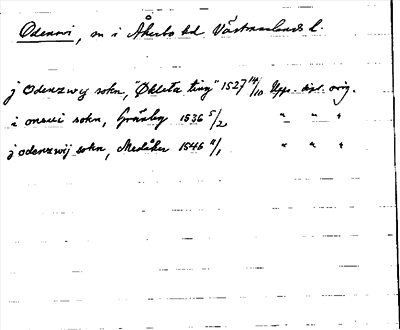 Odenswi, sn i Åkerbo hd Västmanlands l.
j Odenzwij sokn, "Økleta ting" 1527 14/10 Upps. dipl. orig.
i onswi sokn, Gräsby 1536 5/2 " " "
j odenzwij sokn, Medåker 1546 /1 " " "